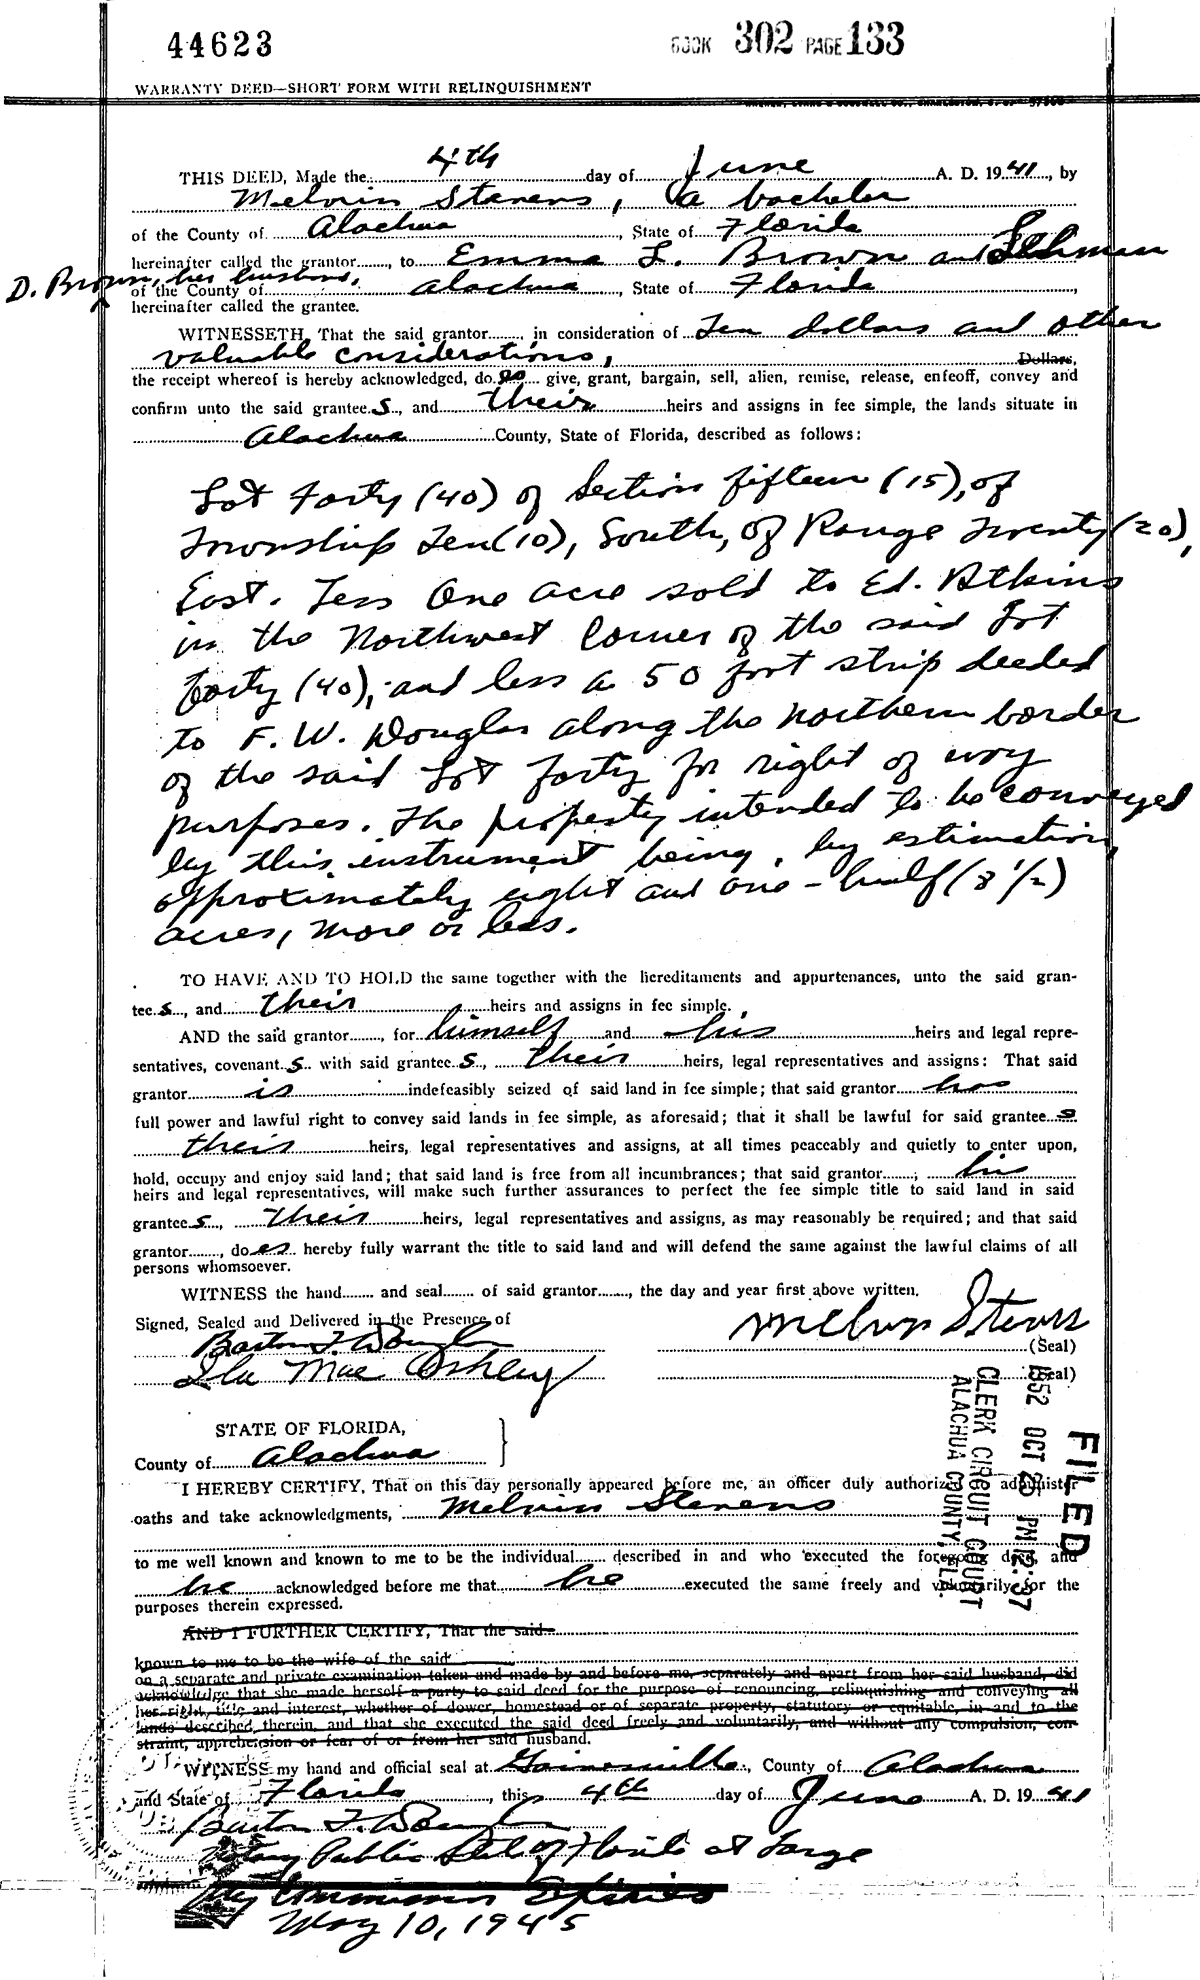 44623
BOOK 302 PAGE 133
WARRANTY DEED—SHORT FORM WITH RELINQUISHMENT
THIS DEED, Made the 4th day of June A. D. 1941, by
Melvin Stevens, a bachelor
of the County of Alachua, State of Florida
hereinafter called the grantor, to Emma L. Brown and Lehman
D. Brown, her husband,
of the County of Alachua, State of Florida,
hereinafter called the grantee.
WITNESSETH, That the said grantor, in consideration of Ten dollars and other
valuable considerations, Dollars,
the receipt whereof is hereby acknowledged, do es give, grant, bargain, sell, alien, remise, release, enfeoff, convey and
confirm unto the said grantee s, and their heirs and assigns in fee simple, the lands situate in
Alachua County, State of Florida, described as follows:
Lot Forty (40) of Section fifteen (15), of
Township Ten (10), South, of Range Twenty (20),
East. Less One acre sold to Ed. Atkins
in the Northwest Corner of the said Lot
forty (40), and less a 50 foot strip deeded
to F. W. Douglas along the northern border
of the said Lot forty for right of way
purposes. The property intended to be conveyed
by this instrument being, by estimation,
approximately eight and one-half (8 1/2)
acres, more or less.
TO HAVE AND TO HOLD the same together with the hereditaments and appurtenances, unto the said gran-
tee s, and their heirs and assigns in fee simple.
AND the said grantor, for himself and his heirs and legal repre-
sentatives, covenant s with said grantee s, their heirs, legal representatives and assigns: That said
grantor is indefeasibly seized of said land in fee simple; that said grantor has
full power and lawful right to convey said lands in fee simple, as aforesaid; that it shall be lawful for said grantee s
their heirs, legal representatives and assigns, at all times peaceably and quietly to enter upon,
hold, occupy and enjoy said land; that said land is free from all incumbrances; that said grantor, his
heirs and legal representatives, will make such further assurances to perfect the fee simple title to said land in said
grantee s, their heirs, legal representatives and assigns, as may reasonably be required; and that said
grantor, do es hereby fully warrant the title to said land and will defend the same against the lawful claims of all
persons whomsoever.
WITNESS the hand and seal of said grantor, the day and year first above written.
Signed, Sealed and Delivered in the Presence of
Melvin Stevens (Seal)
Barton T. Douglas
Ila Mae Oshley (Seal)
FILED
1952 OCT 23 PM 12:37
CLERK CIRCUIT COURT
ALACHUA COUNTY, FLA.
STATE OF FLORIDA,
County of Alachua
I HEREBY CERTIFY, That on this day personally appeared before me, an officer duly authorized administer
oaths and take acknowledgments, Melvin Stevens
to me well known and known to me to be the individual described in and who executed the foregoing deed, and
he acknowledged before me that he executed the same freely and voluntarily for the
purposes therein expressed.
AND I FURTHER CERTIFY, That the said
known to me to be the wife of the said
on a separate and private examination taken and made by and before me, separately and apart from her said husband, did
acknowledge that she made herself a party to said deed for the purpose of renouncing, relinquishing and conveying all
her right, title and interest, whether of dower, homestead or of separate property, statutory or equitable, in and to the
lands described therein, and that she executed the said deed freely and voluntarily, and without any compulsion, con-
straint, apprehension or fear of or from her said husband.
WITNESS my hand and official seal at Gainesville, County of Alachua
and State of Florida, this 4th day of June A. D. 1941
Barton T. Douglas
Notary Public State of Florida at Large
My Commission Expires
May 10, 1945